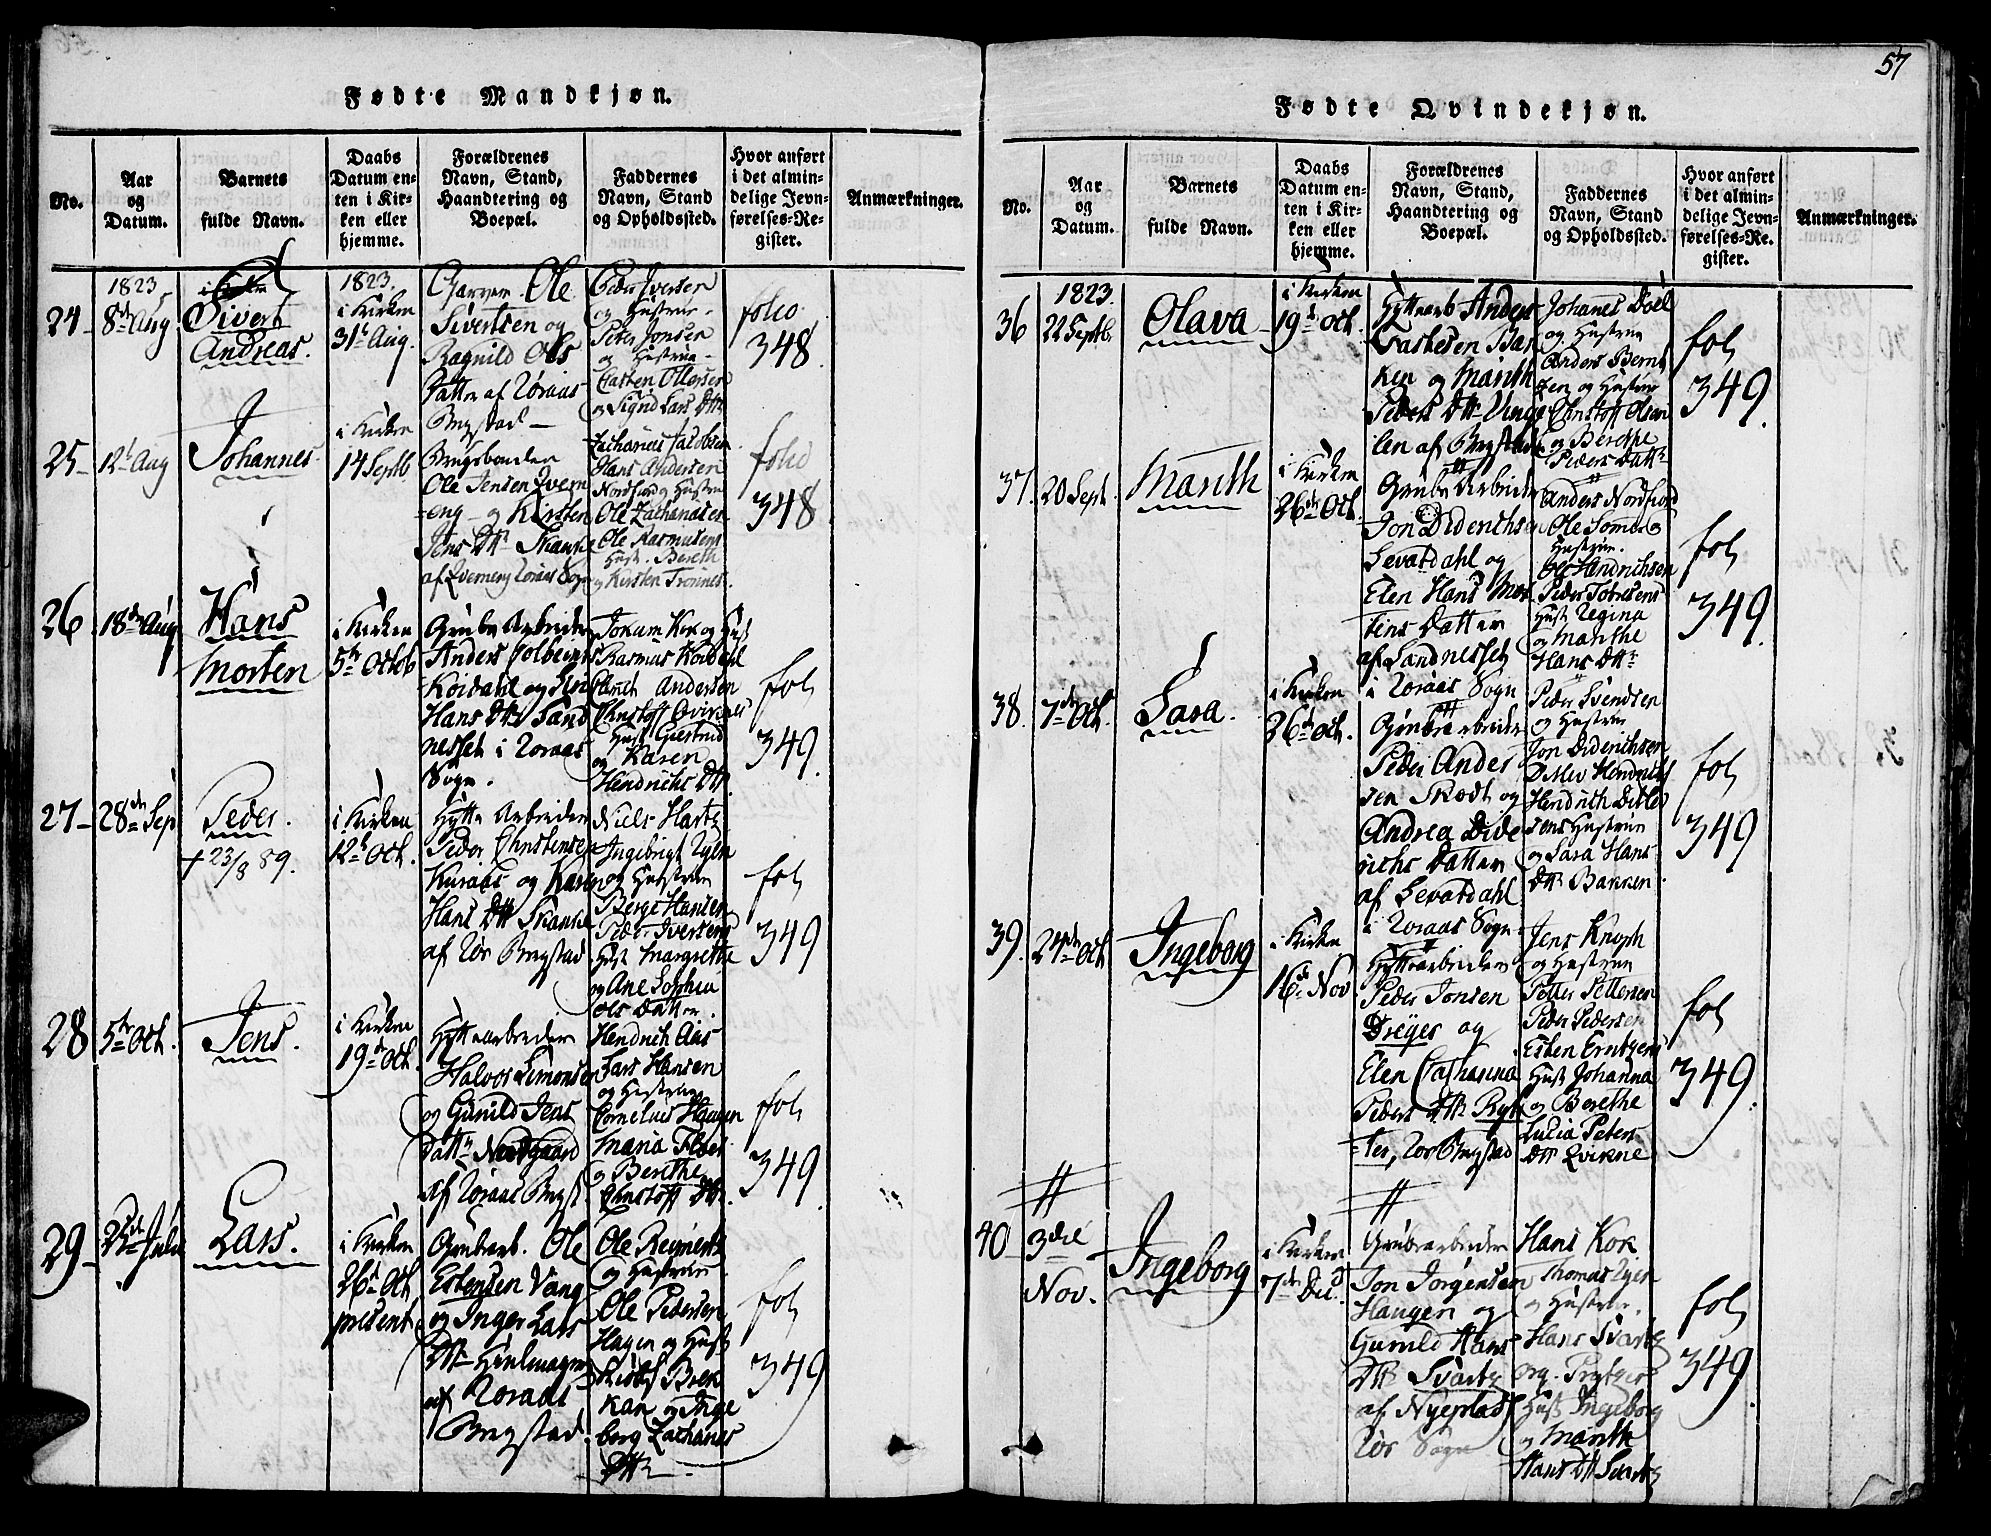 57
Fødte Mandkjøn.
No.
Aar
og
Datum.
Barnets
fulde Navn.
Daabs
Datum en-
ten i Kir-
ken eller
hjemme.
Forældrenes
Navn, Stand,
Haandtering og
Boepæl.
Faddernes
Navn, Stand
og Opholdssted.
Hvor anført
i det almin-
delige Jevn-
førelses-Re-
gister.
Anmærkninger.
24
1823
8de Aug
Sivert
Andreas.
1823.
i Kirken
31te Aug.
Garver Ole
Sivertsen og
Ragnild Ols
Datter af Røraas
Bergstad
Peder Iversen
og Hustrue
Peter Jonsen
og Hustrue
Carsten Ollersen
og Sigrid Lars Dttr
folio
348
25
12t Aug
Johannes
i Kirken
14 Septb
Brugsbonden
Ole Jensen Qvern
eng og Kirsten
Jens Dttr Skanke
af Qverneng Røraas Sogn
Zacharias Jacobsen
Hans Andersen
Nordfiord og Hustrue
Ole Zachariasen
Ole Rasmusens
Hust. Bereth
og Kirsten Trønnes.
folio
348
26
18de Aug
Hans
Morten
i Kirken
5te Octob
Grube Arbeider
Anders
Koidahl og Elen
Hans Dttr Sand
nesset i Røraas
Sogn.
Jokum Kok og Hust
Rasmus Koidahl
Andersen
Christoff Qvirnes
Hust Giertrud
og Karen
Hendrichs Dttr
fol
349
27
28de Sep
Peder.
+ 23/8 89.
i Kirken
12t Oct.
Hytte Arbeider
Peder Christensen
Kuraas og Karen
Hans Dttr Skanke
af Rør Bergstad
Niels Hartz
Ingebrigt Ryen
og Hustrue
Berge Hansen
Peder Iversens
Hust Margrethe
og Ane Sophia
Ols Datter.
fol
349
28
5te Oct.
Jens.
i Kirken
19de Oct.
Hyttearbeider
Halvor Simonsen
og Gunild Jens
Datter Nordgaard
af Røraas Bergst
Hendrich Aas
Lars Hansen
og Hustrue
Cornelius Haugen
Maria Floer
og Berethe
Christoff Dttr.
fol
349
29
Lars.
i Kirken
26d Oct
present
Grubearb. Ole
Estensen Vang
og Inger Lars
Dttr
af Røraas
Bergstad
Ole Reinerts
og Hustrue
Ole Pedersen
Hagen og Hust
Brek
kan og Inge
borg Zacharias
Dttr
fol
349
Fødte Qvindekjøn.
No.
Aar
og
Datum.
Barnets
fulde Navn.
Daabs
Datum en-
ten i Kir-
ken eller
hjemme.
Forældrenes
Navn, Stand,
Haandtering og
Boepæl.
Faddernes
Navn, Stand
og Opholdssted.
Hvor anført
i det almin-
delige Jevn-
førelses-Re-
gister.
Anmærkninger.
36
1823.
22 Septb.
Olava
i Kirken
19d Oct.
Hyttearb Anders
Carstesen Bak
ken og Marith
Peders Dttr Vinge
len af Bergstad
Johanes Doel
og Hustrue
Anders Bernt
sen og Hustrue
Christoff Olsen
og Berethe
Peders Dattr
fol
349
37
20 Sept.
Marith
i Kirken
26de Oct.
Grube Arbeider
Jon Diderichsen
Sevatdahl og
Elen Hans Mor
tens Datter
af Sandnesset
i Røraas Sogn
Anders Nordfiord
Ole Tomos og
Hustrue.
Ole Hendrichsen
Peder Tøresens
Hust Regina
og Marithe
Hans Dttr
fol
349
38
7de Oct.
Sara.
i Kirken
26de Oct.
Grubearbeider
Peder Ander
sen Skodt og
Andrea Dide
richs Datter
af Sevatdahl
i Røraas Sogn
Peder Svendsen
og Hustrue
Jon Diderichsen
Ditlev Hendrichs
Hendrich Ditlev
sens Hustrue
og Sara Hans
Dttr Bakken
fol
349
39
24de Oct
Ingeborg
i Kirken
16de Nov
Hyttearbeider
Peder Jonsen
Dreyer og
Elen Catharina
Peders Dttr Ryt
ter, Rør Bergstad
Jens Knoph
og Hustrue
Petter Pettersen
Peder Pedersen
Esten Erntzens
Hust Johanna
og Berethe
Lucia Peters
Dttr Qvikne
fol
349
40
3die
Nov.
Ingeborg
i Kirken
7de Dec.
Grubearbeider
Jon Jørgensen
Haugen og
Gunild Hans
Dttr Svartz
af Nyeplads
Rør Sogn
Hans Kok
Thomas Ryen
og Hustrue.
Hans Svartz
org. Prytzes
Hust Ingeborg
og Marith
Hans Dtt Svartz
fol
349